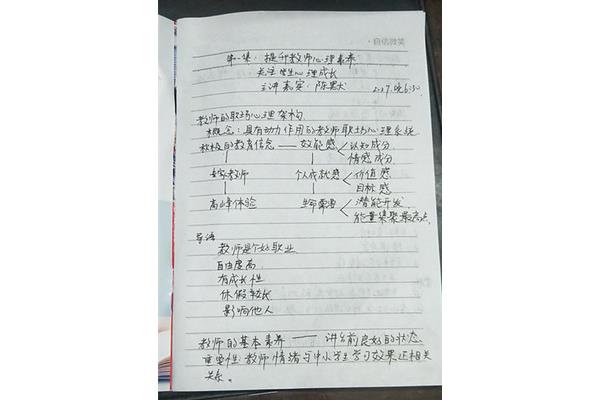 ·自信微笑
第一集：提升教师心理素养
关注学生心理成长
主讲嘉宾：陈默
晚6:30
教师的职场心理架构
概念：具有动力作用的教师职场心理系统
积极的教育信念——效能感 认知成分
情感成分
教师 个人成就感 价值感
目标感
高峰体验 生命 潜能开发
能量集聚最高点
导语
教师是个好职业
自由度高
有成长性
休假较长
影响他人
教师的基本素养——讲台前良好的状态
重要性：教师情绪与中小学生学习效果正相关
关系。